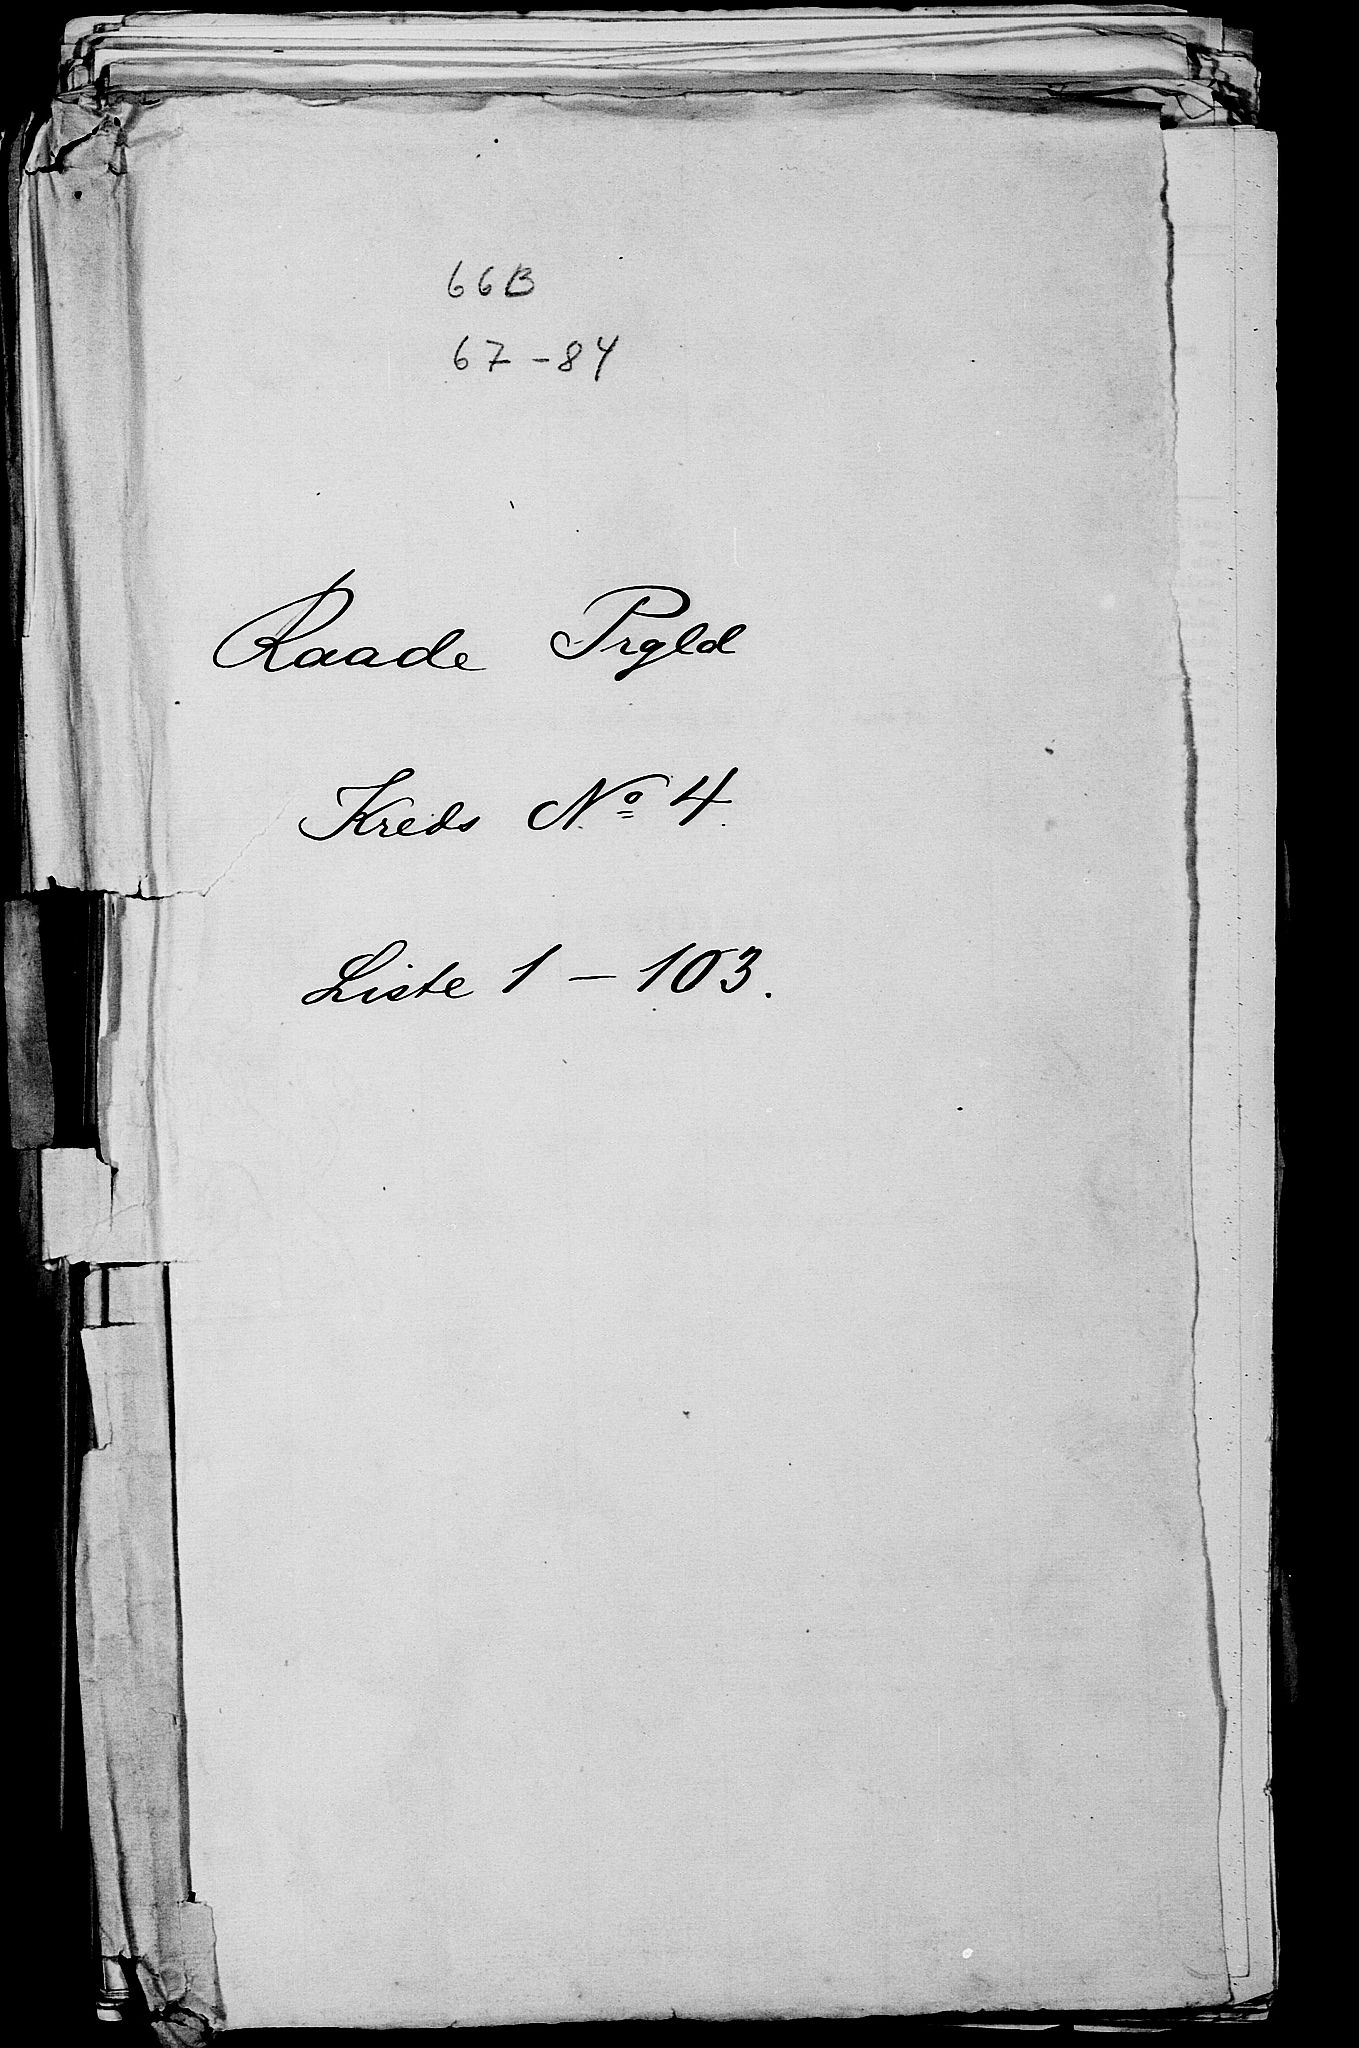 66B
67-84
Raade Prgld
Kreds No 4.
Liste 1 - 103.